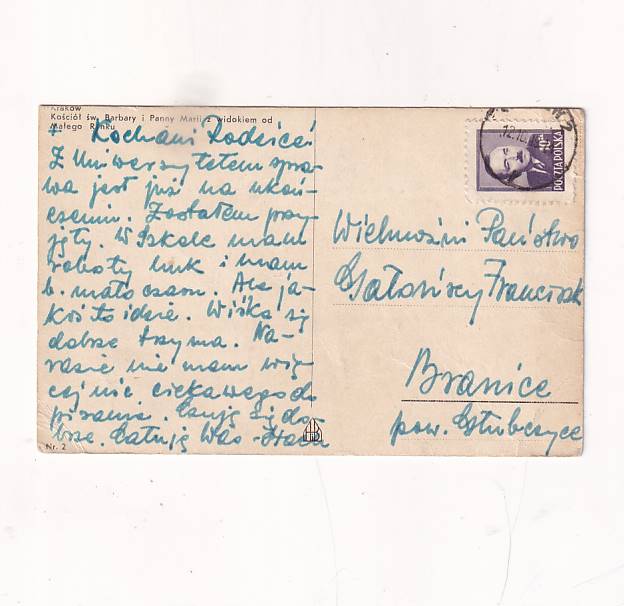 Kraków
Kościół św. Barbary i Panny Marii z widokiem od
Małego Rynku
+ Kochani Rodzice!
Z Uniwersytetem spra-
wa jest już na ukoń-
czeniu. Zostałem przy-
jęty. W Szkole mam
roboty huk i mam
b. mało czasu. Ale ja-
koś to idzie. Wiśka się
dobrze trzyma. Na-
razie nie mam wię-
cej nic ciekawego do
pisania. Czuję się do-
brze. Całuję Was
Nr. 2
POCZTA POLSKA
Wielmożni Państwo
Franciszk
Branice
pow. Głubczyce